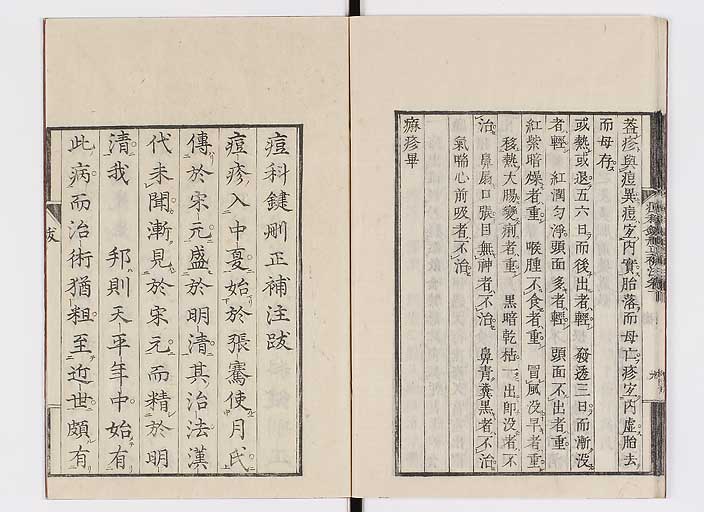 蓋疹與痘異痘宜內實胎落而母亡疹宜內虛胎去
而母存
或熱或退五六日而後出者輕 發透三日而漸沒
者輕 紅潤勻淨頭面多者輕 頭面不出者重
紅紫暗燥者重 喉腫不食者重 冒風沒早者重
移熱大腸變痢者重 黑暗乾枯一出即沒者不
治 鼻扇口張目無神者不治 鼻青糞黑者不治
氣喘心前吸者不治
麻疹畢
痘科鍵刪正補注跋
痘疹入中夏始於張騫使月氏
傳於宋元盛於明清其治法漢
代未聞漸見於宋元而精於明
清我 邦則天平年中始有
此病而治術猶粗至近世頗有
跋